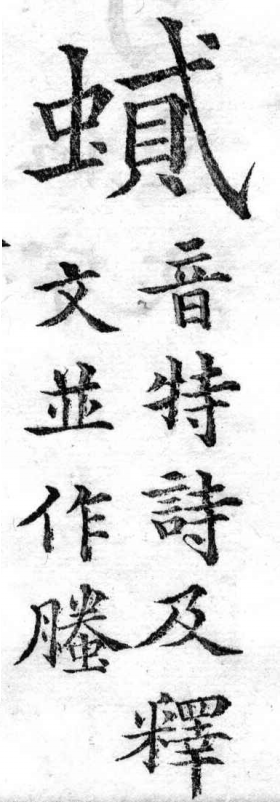 蟘
音特詩及釋
文並作螣